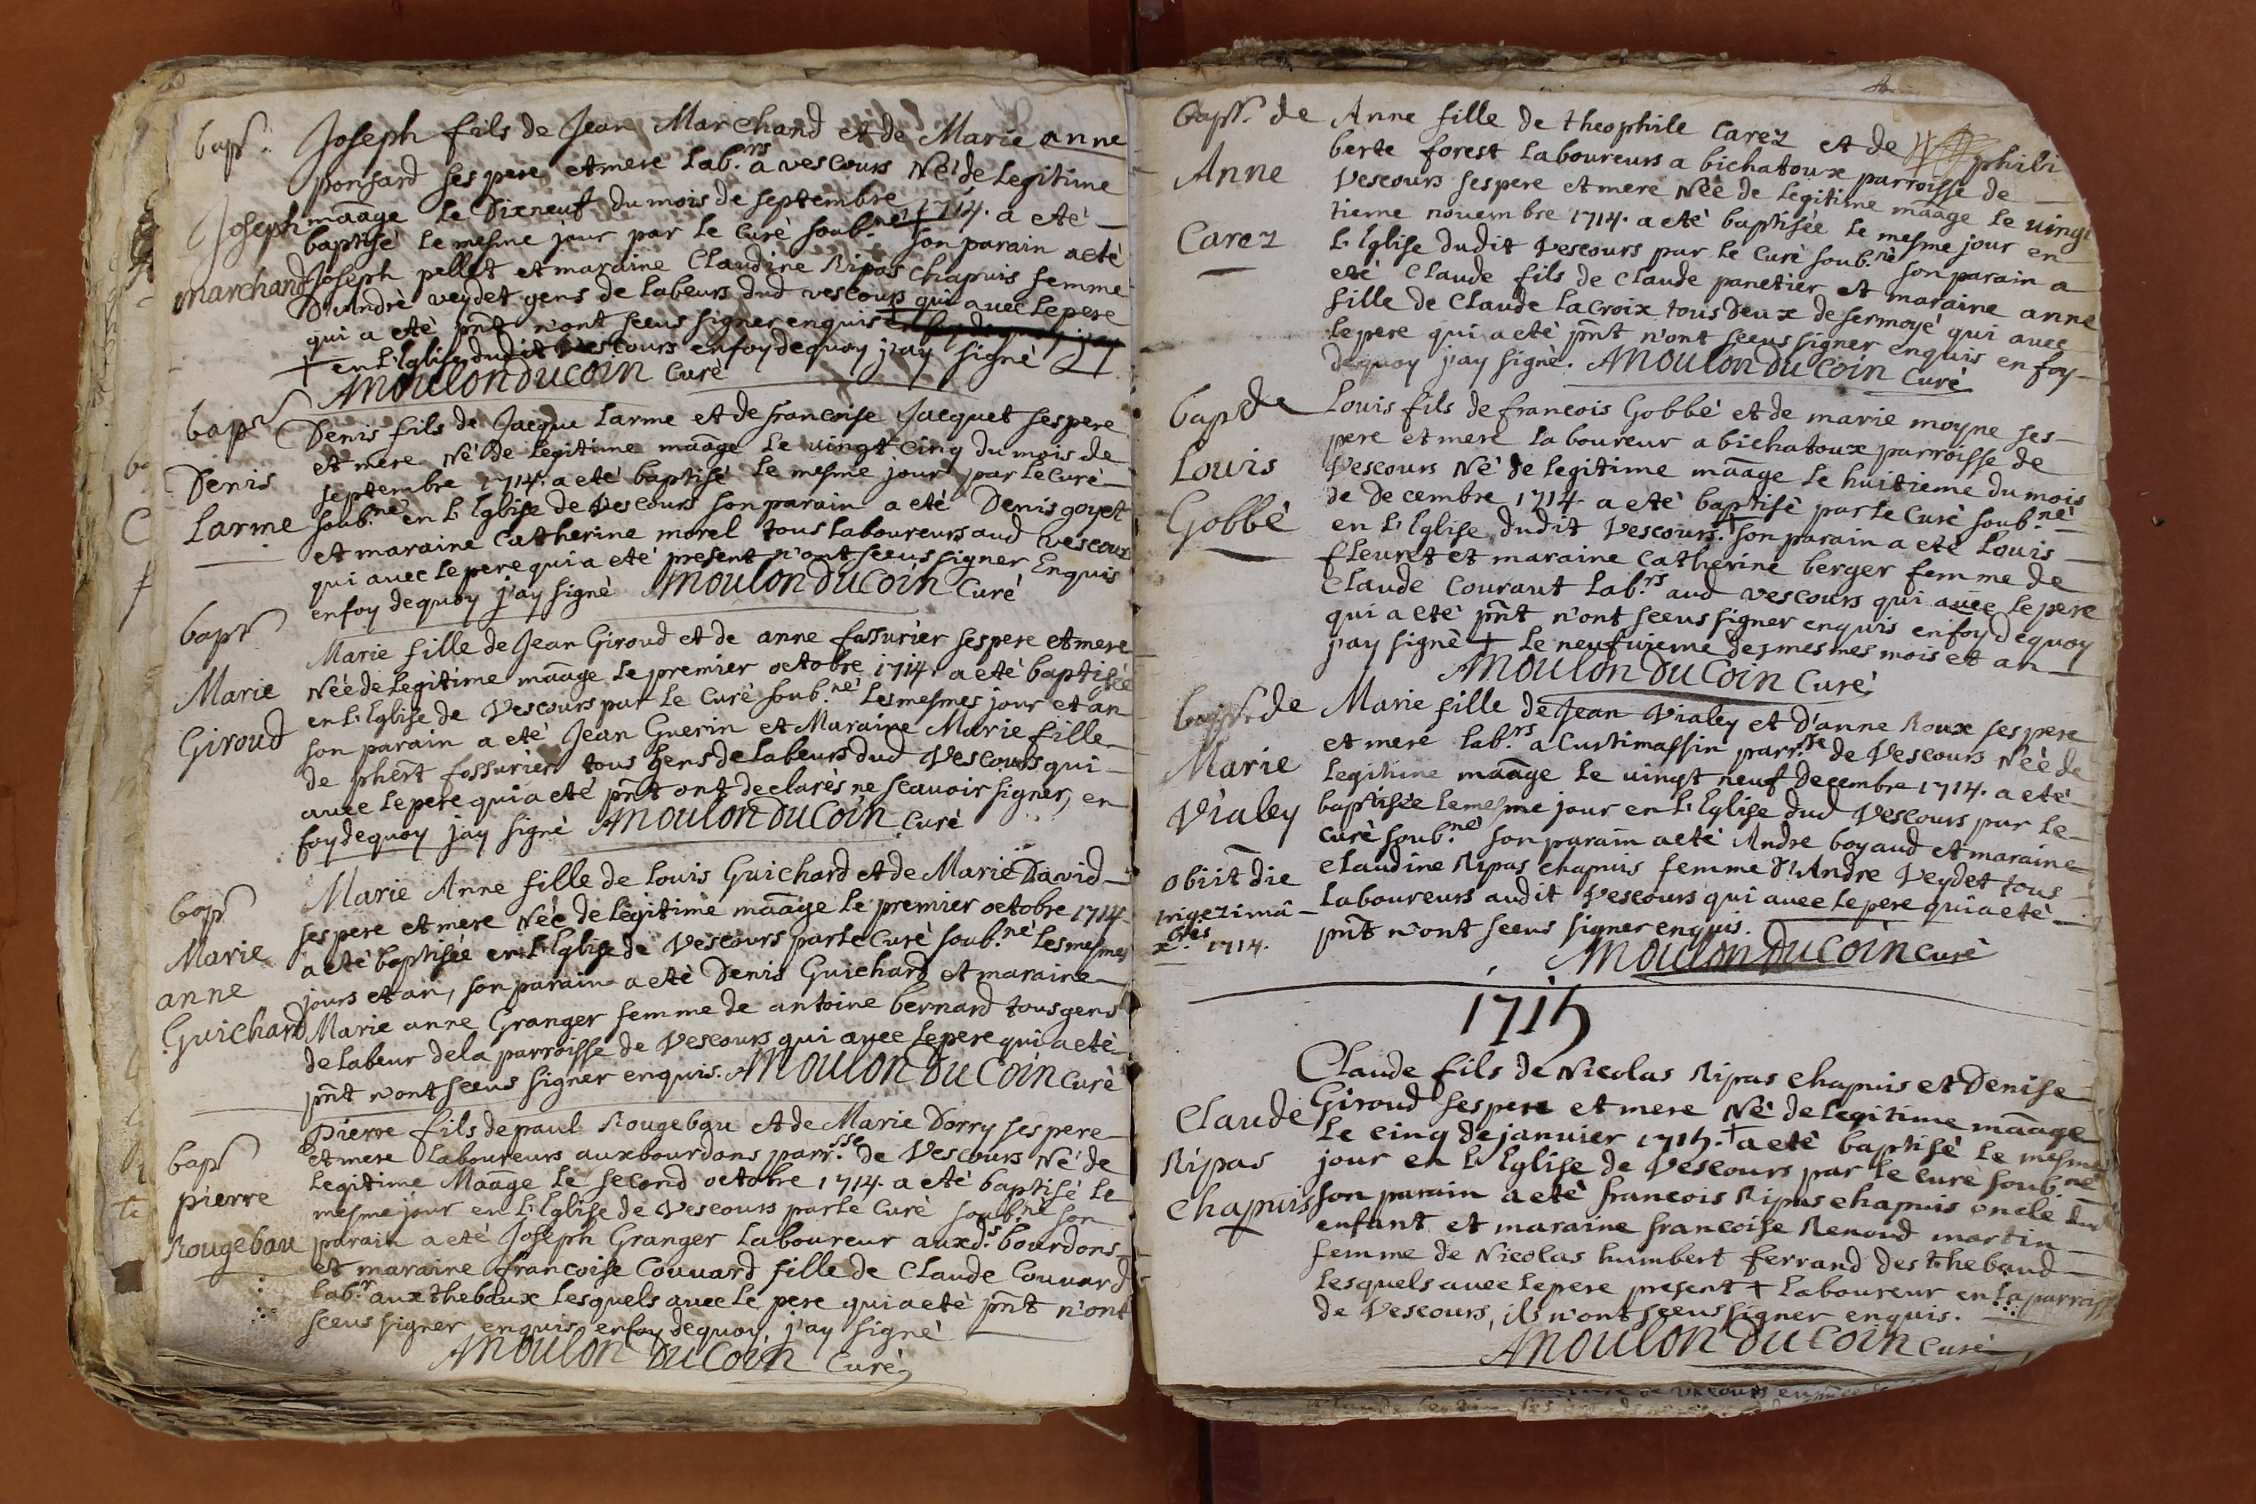 bapt.
Joseph
marchand
Joseph fils de Jean Marchand et de Marie anne
ponsard ses pere et mere lab.rs a vescours Né de legitime
maãge le Dixneuf du mois de septembre 1714. a eté
baptisé le mesme jour par le Curé soub.né + son parain a eté
Joseph pellet et maraine Claudine Ripas Chapuis femme
D'André veydet gens de labeurs dud vescours qui avec le pere
qui a eté pñt n'ont sceus signer enquis
+ en l'Eglise dudit vescours en foy de quoy j'ay signé
Moulon Du Coin Curé
bapt
Denis
Larme
Denis fils de Jacque Larme et de francoise Jacquet ses pere
et mere Né de legitime maãge le vingt cinq du mois de
septembre 1714. a eté baptisé le mesme jour par le Curé
soub.né en l'Eglise de Vescours son parain a eté Denis goyet
et maraine Catherine morel tous laboureurs aud vescours
qui avec le pere qui a eté present n'ont sceus signer Enquis
en foy de quoy j'ay signé Moulon Du Coin Curé
bapt
Marie
Giroud
Marie fille de Jean Giroud et de anne fossurier ses pere et mere
Née de legitime maãge le premier octobre 1714. a eté baptisée
en l'Eglise de Vescours par le Curé soub.né les mesmes jour et an
son parain a eté Jean Guerin et Maraine Marie fille
de phert fossurier tous gens de labeurs dud Vescours qui
avec le pere qui a eté pñt ont declarés ne scavoir signer, en
foy de quoy j'ay signé Moulon Du Coin Curé
bapt
Marie
anne
Guichard
Marie Anne fille de Louis Guichard et de Marie David
ses pere et mere Née de legitime maãge le premier octobre 1714
a eté baptisée en l'Eglise de Vescours par le Curé soub.né les mesmes
jours et an, son parain a eté Denis Guichard et maraine
Marie anne Granger femme de antoine bernard tous gens
de labeur de la parroisse de Vescours qui avec le pere qui a eté
pñt n'ont sceus signer enquis. Moulon Du Coin Curé
bapt
pierre
Rougebau
Pierre fils de paul Rougebau et de Marie Dorry ses pere
et mere laboureurs aux bourdons parr.sse de Vescours Né de
legitime Maãge le second octobre 1714 a eté baptisé le
mesme jour en l'Eglise de Vescours par le Curé soub.né son
parain a eté Joseph Granger laboureur auxd.s bourdons
et maraine francoise Couvard fille de Claude Couvard
lab.r aux thebaux lesquels avec le pere qui a eté pñt n'ont
sceus signer enquis en foy de quoy, j'ay signé
Moulon Du Coin Curé
bapt. de
Anne
Carez
Anne fille de theophile Carez et de phili
berte forest laboureurs a bichatoux parroisse de
Vescours ses pere et mere Née de legitime maãge le vingt
tieme novembre 1714. a eté baptisée le mesme jour en
l'Eglise dudit Vescours par le Curé soub.né son parain a
eté Claude fils de Claude panetier et maraine anne
fille de Claude la Croix tous deux de sermoyé qui avec
le pere qui a eté pñt n'ont sceus signer enquis en foy
de quoy j'ay signé. Moulon Du Coin Curé
bapt de
Louis
Gobbé
Louis fils de francois Gobbé et de marie moyne ses
pere et mere laboureur a bichatoux parroisse de
Vescours Né de legitime maãge le huitieme du mois
de Decembre 1714 a eté baptisé par le Curé soub.né
en l'Eglise dudit Vescours. + son parain a eté Louis
fleuret et maraine Catherine berger femme de
Claude Courant lab.rs aud vescours qui avec le pere
qui a eté pñt n'ont sceus signer enquis en foy de quoy
j'ay signé + le neufvieme des mesmes mois et an
Moulon Du Coin Curé
bapt. de
Marie
Vialey
obiit die
trigezimâ
xbris 1714.
Marie fille de Jean Vialey et D'anne Roux ses pere
et mere lab.rs a Curtimassin parr.sse de Vescours Née de
legitime maãge le vingt neuf Decembre 1714. a eté
baptisée le mesme jour en l'Eglise dud Vescours par le
Curé soub.né son parain a eté Andre boyaud et maraine
Claudine Ripas chapuis femme d'Andre Veydet tous
laboureurs audit Vescours qui avec le pere qui a eté
pñt n'ont sceus signer enquis.
Moulon Du Coin Curé
1715
Claude
Ripas
Chapuis
Claude fils de Nicolas Ripas chapuis et Denise
Giroud ses pere et mere Né de legitime maãge
le cinq de janvier 1715. + a eté baptisé le mesme
jour en l'Eglise de Vescours par le curé soub.né
son parain a eté francois Ripas chapuis oncle dud
enfant et maraine francoise Renoud martin
femme de Nicolas humbert ferrand des thebaud
lesquels avec le pere present + laboureur en la parroisse
de Vescours, ils n'ont sceus signer enquis.
Moulon Du Coin Curé